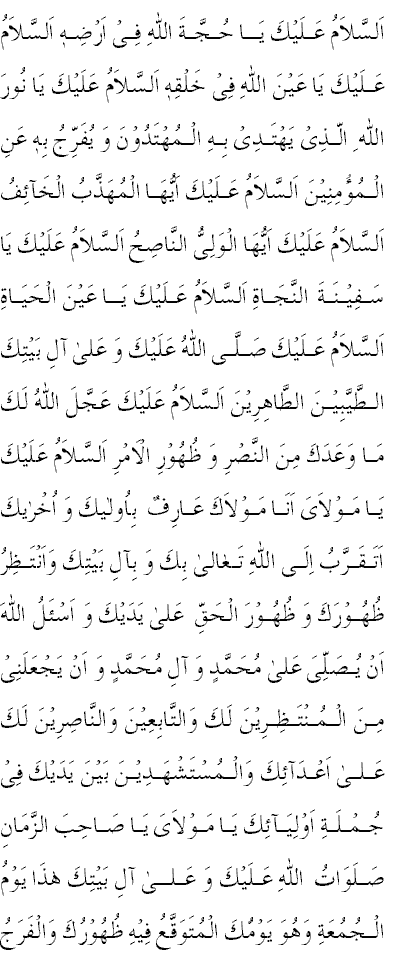 اَلسَّلاَمُ عَلَيْكَ يَا حُجَّةَ اللهِ فِىْ اَرْضِهٖ اَلسَّلاَمُ
عَلَيْكَ يَا عَيْنَ اللهِ فِىْ خَلْقِهٖ اَلسَّلاَمُ عَلَيْكَ يَا نُورَ
اللهِ الَّذِىْ يَهْتَدِىْ بِهِ الْمُهْتَدُوْنَ وَ يُفَرِّجُ بِهٖ عَنِ
الْمُؤْمِنِيْنَ اَلسَّلاَمُ عَلَيْكَ اَيُّهَا الْمُهَذَّبُ الْخَآئِفُ
اَلسَّلاَمُ عَلَيْكَ اَيُّهَا الْوَلِىُّ النَّاصِحُ اَلسَّلاَمُ عَلَيْكَ يَا
سَفِيْنَةَ النَّجَاةِ اَلسَّلاَمُ عَلَيْكَ يَا عَيْنَ الْحَيَاةِ
اَلسَّلاَمُ عَلَيْكَ صَلَّى اللهُ عَلَيْكَ وَ عَلىٰ آلِ بَيْتِكَ
الطَّيِّبِيْنَ الطَّاهِرِيْنَ اَلسَّلاَمُ عَلَيْكَ عَجَّلَ اللهُ لَكَ
مَا وَعَدَكَ مِنَ النَّصْرِ وَ ظُهُوْرِ الْاَمْرِ اَلسَّلاَمُ عَلَيْكَ
يَا مَوْلاَىَ اَنَا مَوْلاَكَ عَارِفٌ بِاُولٰيكَ وَ اُخْرٰيكَ
اَتَقَرَّبُ اِلَى اللهِ تَعَالىٰ بِكَ وَ بِآلِ بَيْتِكَ وَاَنْتَظِرُ
ظُهُوْرَكَ وَ ظُهُوْرَ الْحَقِّ عَلىٰ يَدَيْكَ وَ اَسْئَلُ اللهَ
اَنْ يُصَلِّىَ عَلىٰ مُحَمَّدٍ وَ آلِ مُحَمَّدٍ وَ اَنْ يَجْعَلَنِىْ
مِنَ الْمُنْتَظِرِيْنَ لَكَ وَالتَّابِعِيْنَ وَالنَّاصِرِيْنَ لَكَ
عَلىٰ اَعْدَآئِكَ وَالْمُسْتَشْهَدِيْنَ بَيْنَ يَدَيْكَ فِىْ
جُمْلَةِ اَوْلِيَآئِكَ يَا مَوْلاَىَ يَا صَاحِبَ الزَّمَانِ
صَلَوَاتُ اللهِ عَلَيْكَ وَ عَلىٰ آلِ بَيْتِكَ هٰذَا يَوْمُ
الْجُمُعَةِ وَهُوَ يَوْمُكَ الْمُتَوَقَّعُ فِيْهِ ظُهُوْرُكَ وَالْفَرَجُ